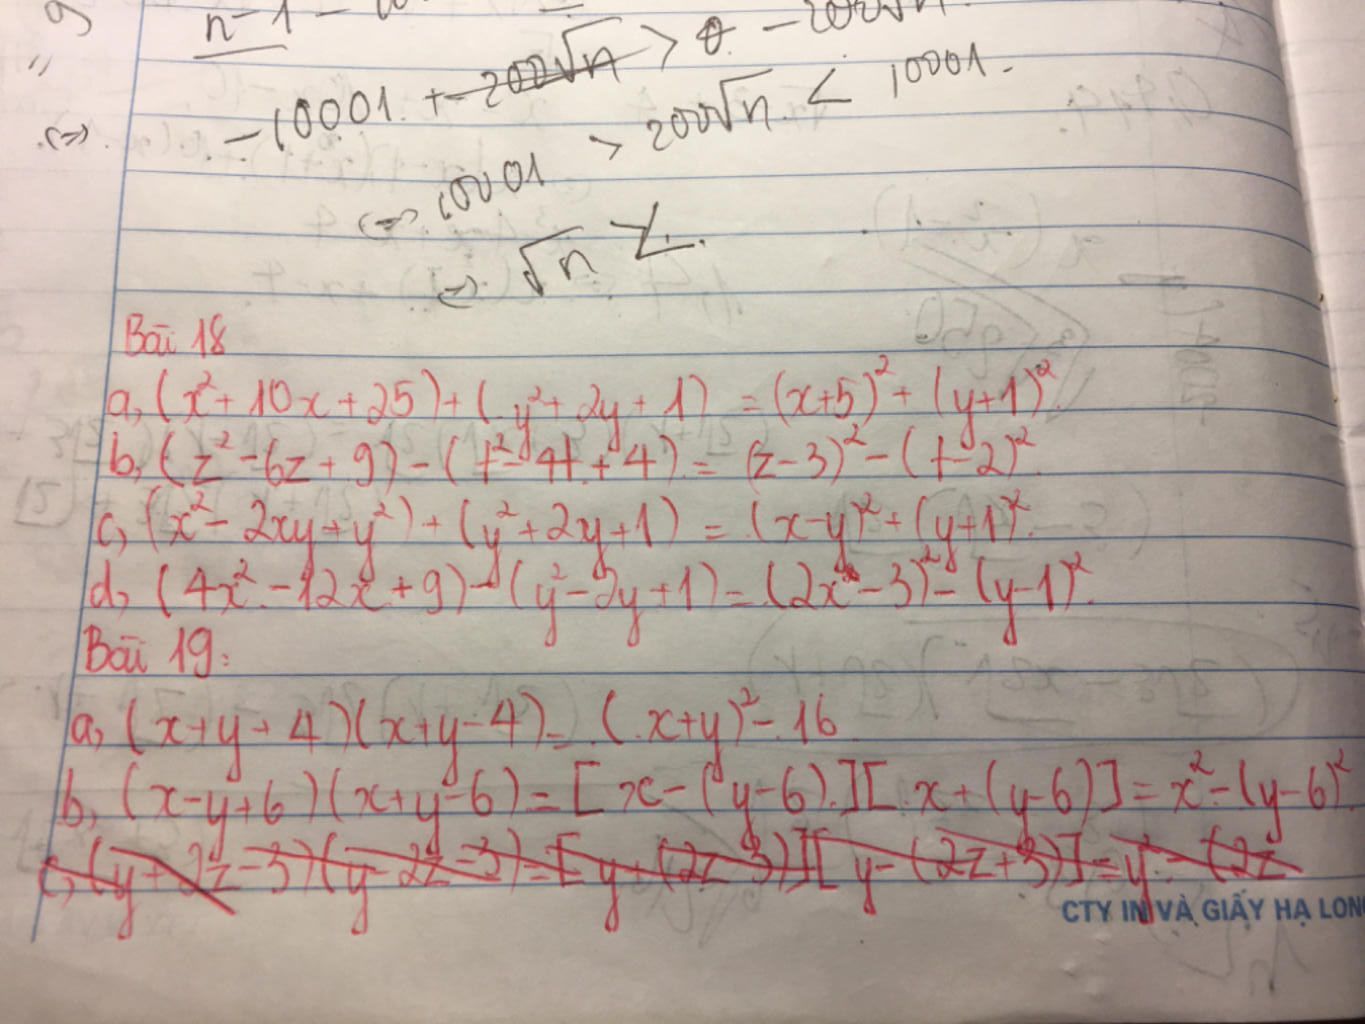 n-1
-10001 + -200√n > 0 - 200√n
⇔ 10001 > 200√n < 10001.
⇒ √n <
Bài 18
a, (x²+10x+25)+(y²+2y+1) = (x+5)²+(y+1)²
b, (z²-6z+9)-(t²-4t+4) = (z-3)²-(t-2)²
c, (x²-2xy+y²)+(y²+2y+1) = (x-y)²+(y+1)².
d, (4x²-12x+9)-(y²-2y+1) = (2x-3)²-(y-1)².
Bài 19:
a, (x+y+4)(x+y-4) = (x+y)²-16
b, (x-y+6)(x+y-6) = [x-(y-6)][x+(y-6)] = x²-(y-6)².
c, (y+2z-3)(y-2z-3) = [y+(2z-3)][y-(2z+3)] = y²-(2z
CTY IN VÀ GIẤY HẠ LONG